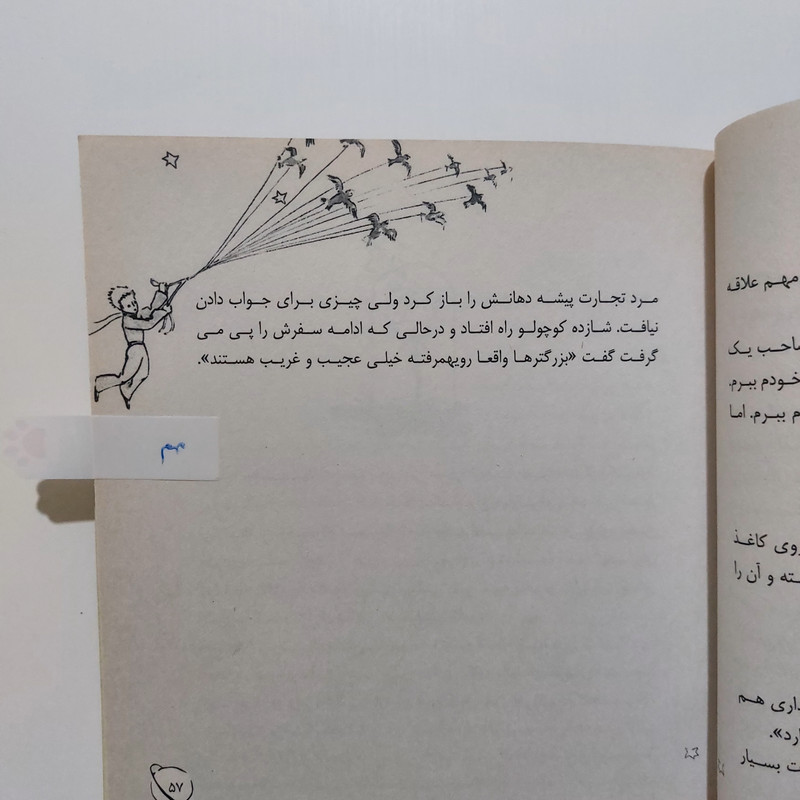 مهم علاقه
صاحب یک
خودم ببرم.
ببرم. اما
روی کاغذ
و آن را
هم
بسیار
مرد تجارت پیشه دهانش را باز کرد ولی چیزی برای جواب دادن
نیافت. شازده کوچولو راه افتاد و درحالی که ادامه سفرش را پی می
گرفت گفت «بزرگترها واقعا رویهمرفته خیلی عجیب و غریب هستند».
مهم
۵۷